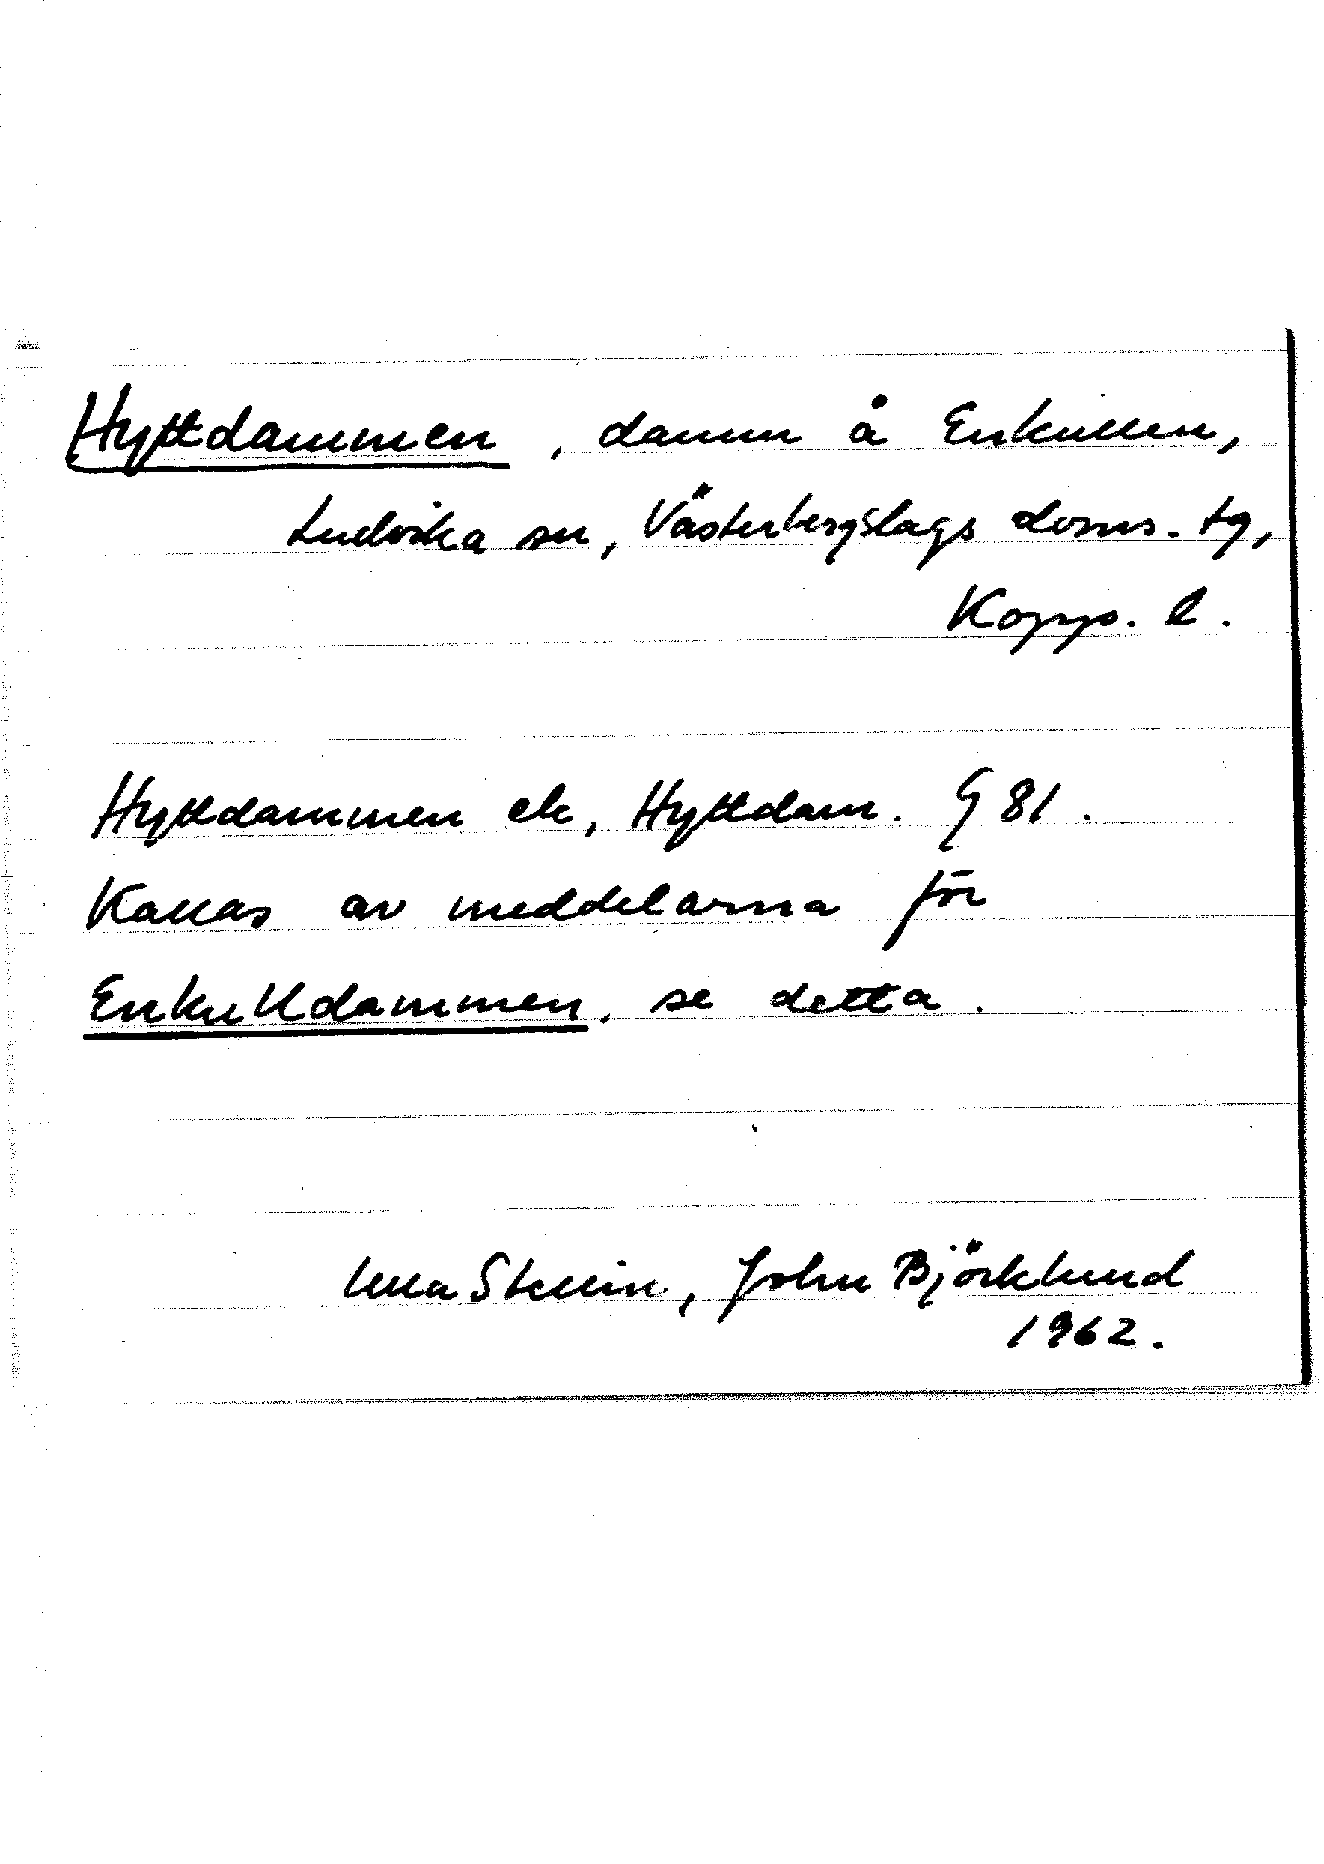 Hyttdammen, damm å Enkullen,
Ludvika sn, Västerbergslags doms. tg,
Kopp. l.
Hyttdammen ek, Hyttdam. G 81.
Kallas av meddelarna för
Enkulldammen, se detta.
Ulla Stellin, John Björklund
1962.